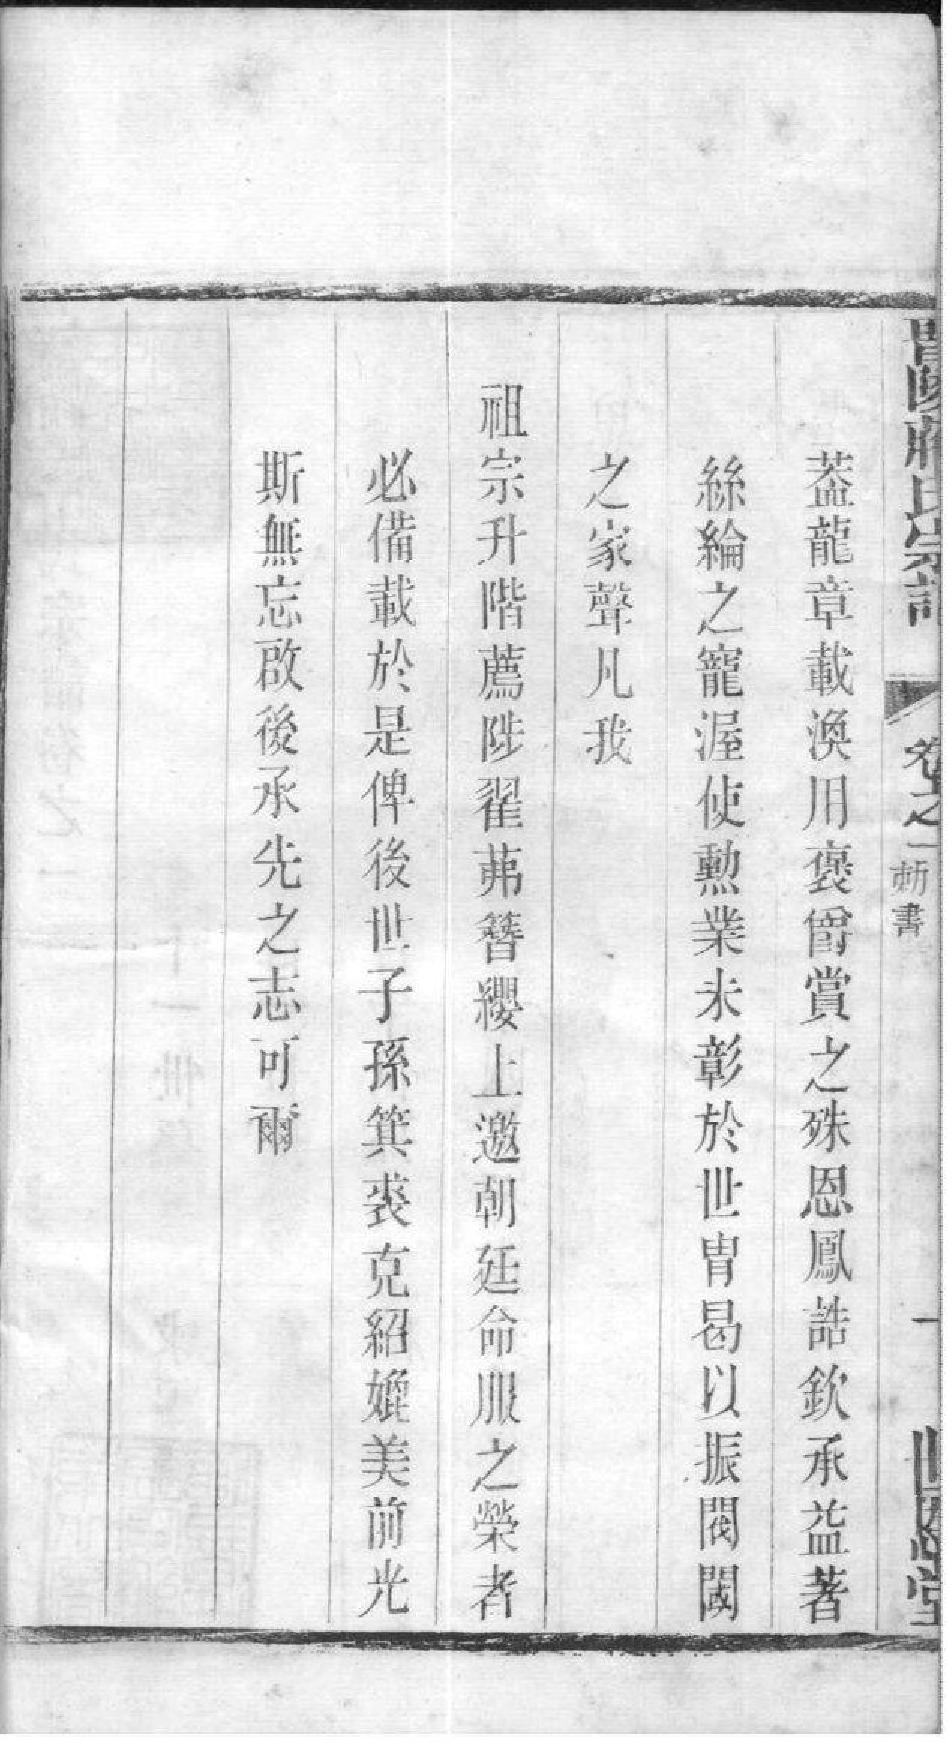 晋陵蔣氏宗譜 卷之一 勅書 一 世恩堂
葢龍章載渙用褒爵賞之殊恩鳳誥欽承益著
絲綸之寵渥使勲業未彰於世胄曷以振閥閱
之家聲凡我
祖宗升階薦陟翟茀簪纓上邀朝廷命服之榮者
必備載於是俾後世子孫箕裘克紹媲美前光
斯無忘啟後承先之志可爾